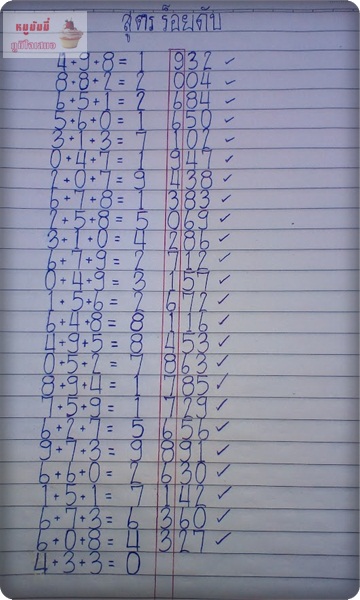 หมูบินขี้
ภูมิใจเสนอ
สูตร ร้อยดับ
4+9+8 = 1 932 ✓
8+8+2 = 2 004 ✓
6+5+1 = 2 684 ✓
5+6+0 = 1 650 ✓
3+1+3 = 7 102 ✓
0+4+7 = 1 947 ✓
2+0+7 = 9 438 ✓
6+7+8 = 1 383 ✓
2+5+8 = 5 069 ✓
3+1+0 = 4 286 ✓
6+7+9 = 2 712 ✓
0+4+9 = 3 157 ✓
1+5+6 = 2 672 ✓
6+4+8 = 8 116 ✓
4+9+5 = 8 453 ✓
0+5+2 = 7 863 ✓
8+9+4 = 1 785 ✓
7+5+9 = 1 729 ✓
6+2+7 = 5 656 ✓
9+7+3 = 9 891 ✓
6+6+0 = 2 630 ✓
1+5+1 = 7 142 ✓
6+7+3 = 6 360 ✓
6+0+8 = 4 327 ✓
4+3+3 = 0